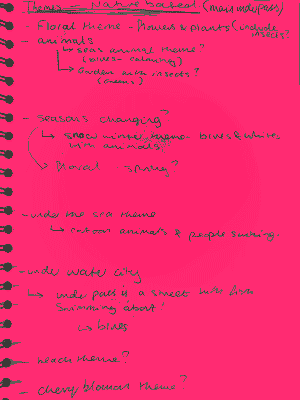 Theme - Nature based (many underpass)
- Floral theme - flowers & plants (include insects?
- animals
↳ semi animal theme?
(bives - calming)
↳ garden with insects?
- seasons changing?
↳ snow winter theme - blues & whites
with animals?
↳ floral spring?
- under the sea theme
↳ cartoon animals & people surfing.
- under water city
↳ under pass is a street with fish
swimming about
↳ blues
- beach theme?
- cherry blossom theme?